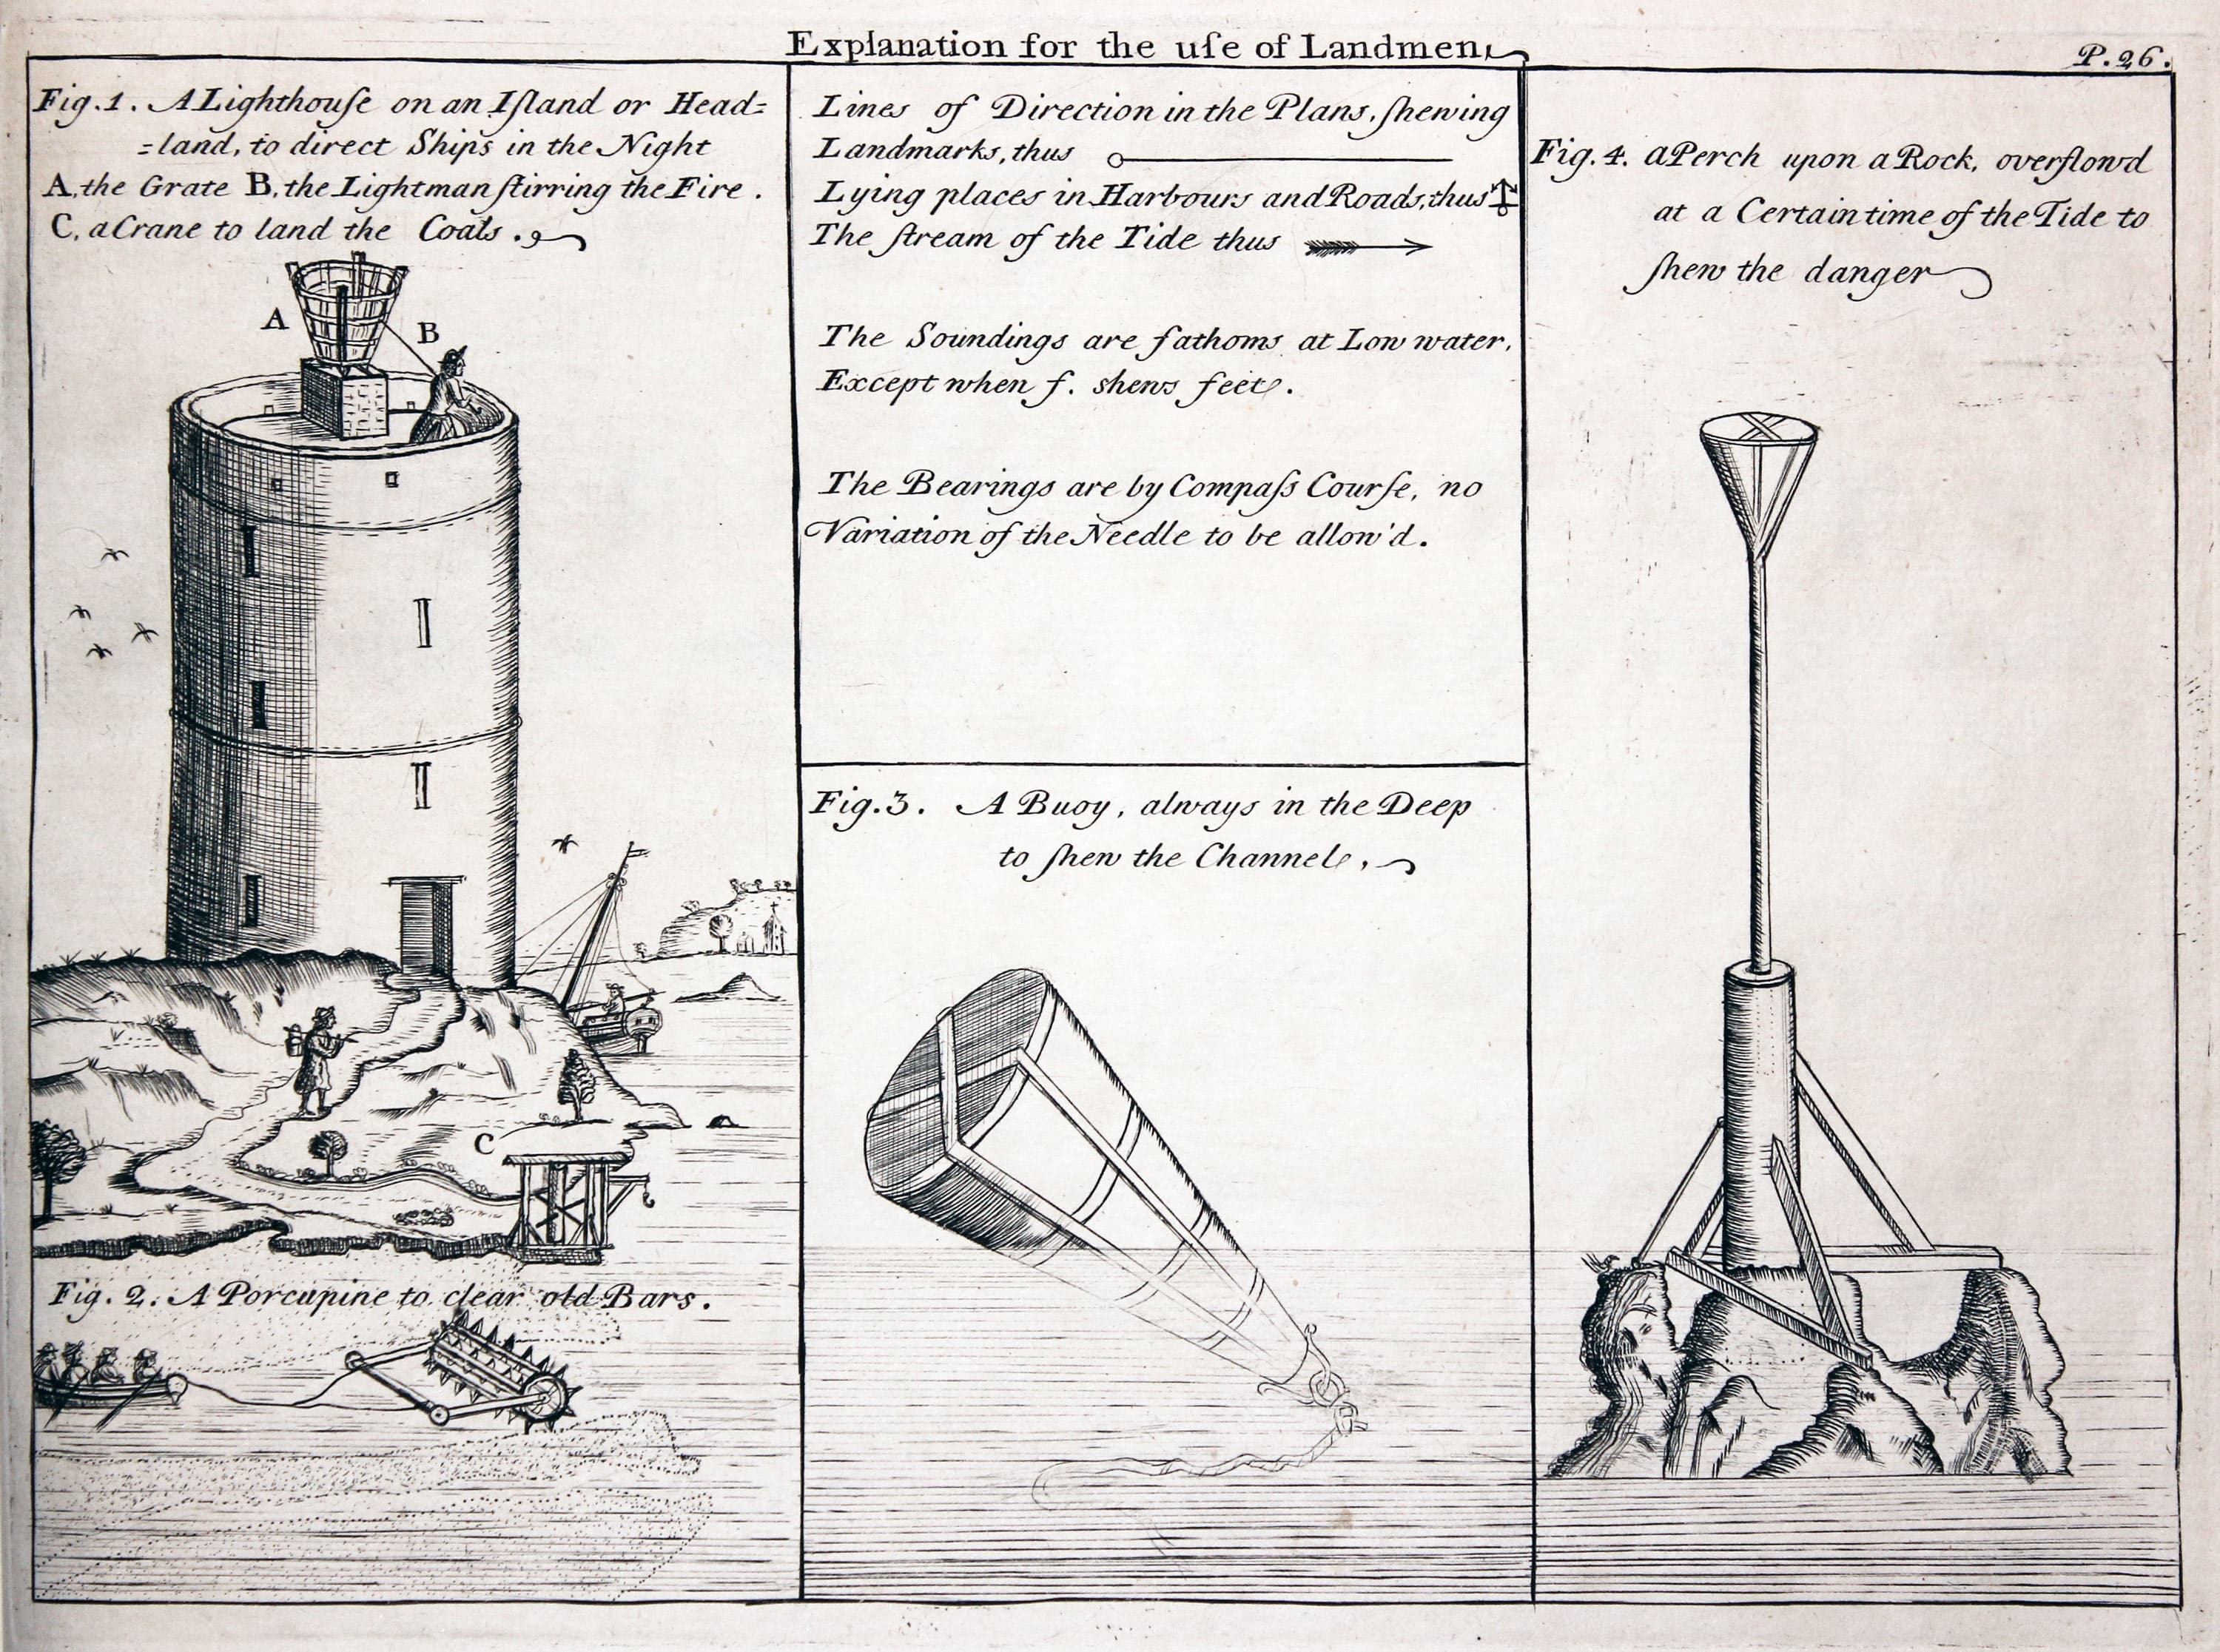 Explanation for the uſe of Landmen.
P. 26.
Fig. 1. A Lighthouſe on an Iſland or Head=
=land, to direct Ships in the Night
A, the Grate B, the Lightman ſtirring the Fire.
C, a Crane to land the Coals.
A
B
C
Fig. 2. A Porcupine to clear old Bars.
Lines of Direction in the Plans, ſhewing
Landmarks, thus
Lying places in Harbours and Roads, thus
The ſtream of the Tide thus
The Soundings are fathoms at Low water,
Except when f. shews feet.
The Bearings are by Compaſs Courſe, no
Variation of the Needle to be allow'd.
Fig. 3. A Buoy, always in the Deep
to ſhew the Channel,
Fig. 4. a Perch upon a Rock, overflow'd
at a Certain time of the Tide to
ſhew the danger